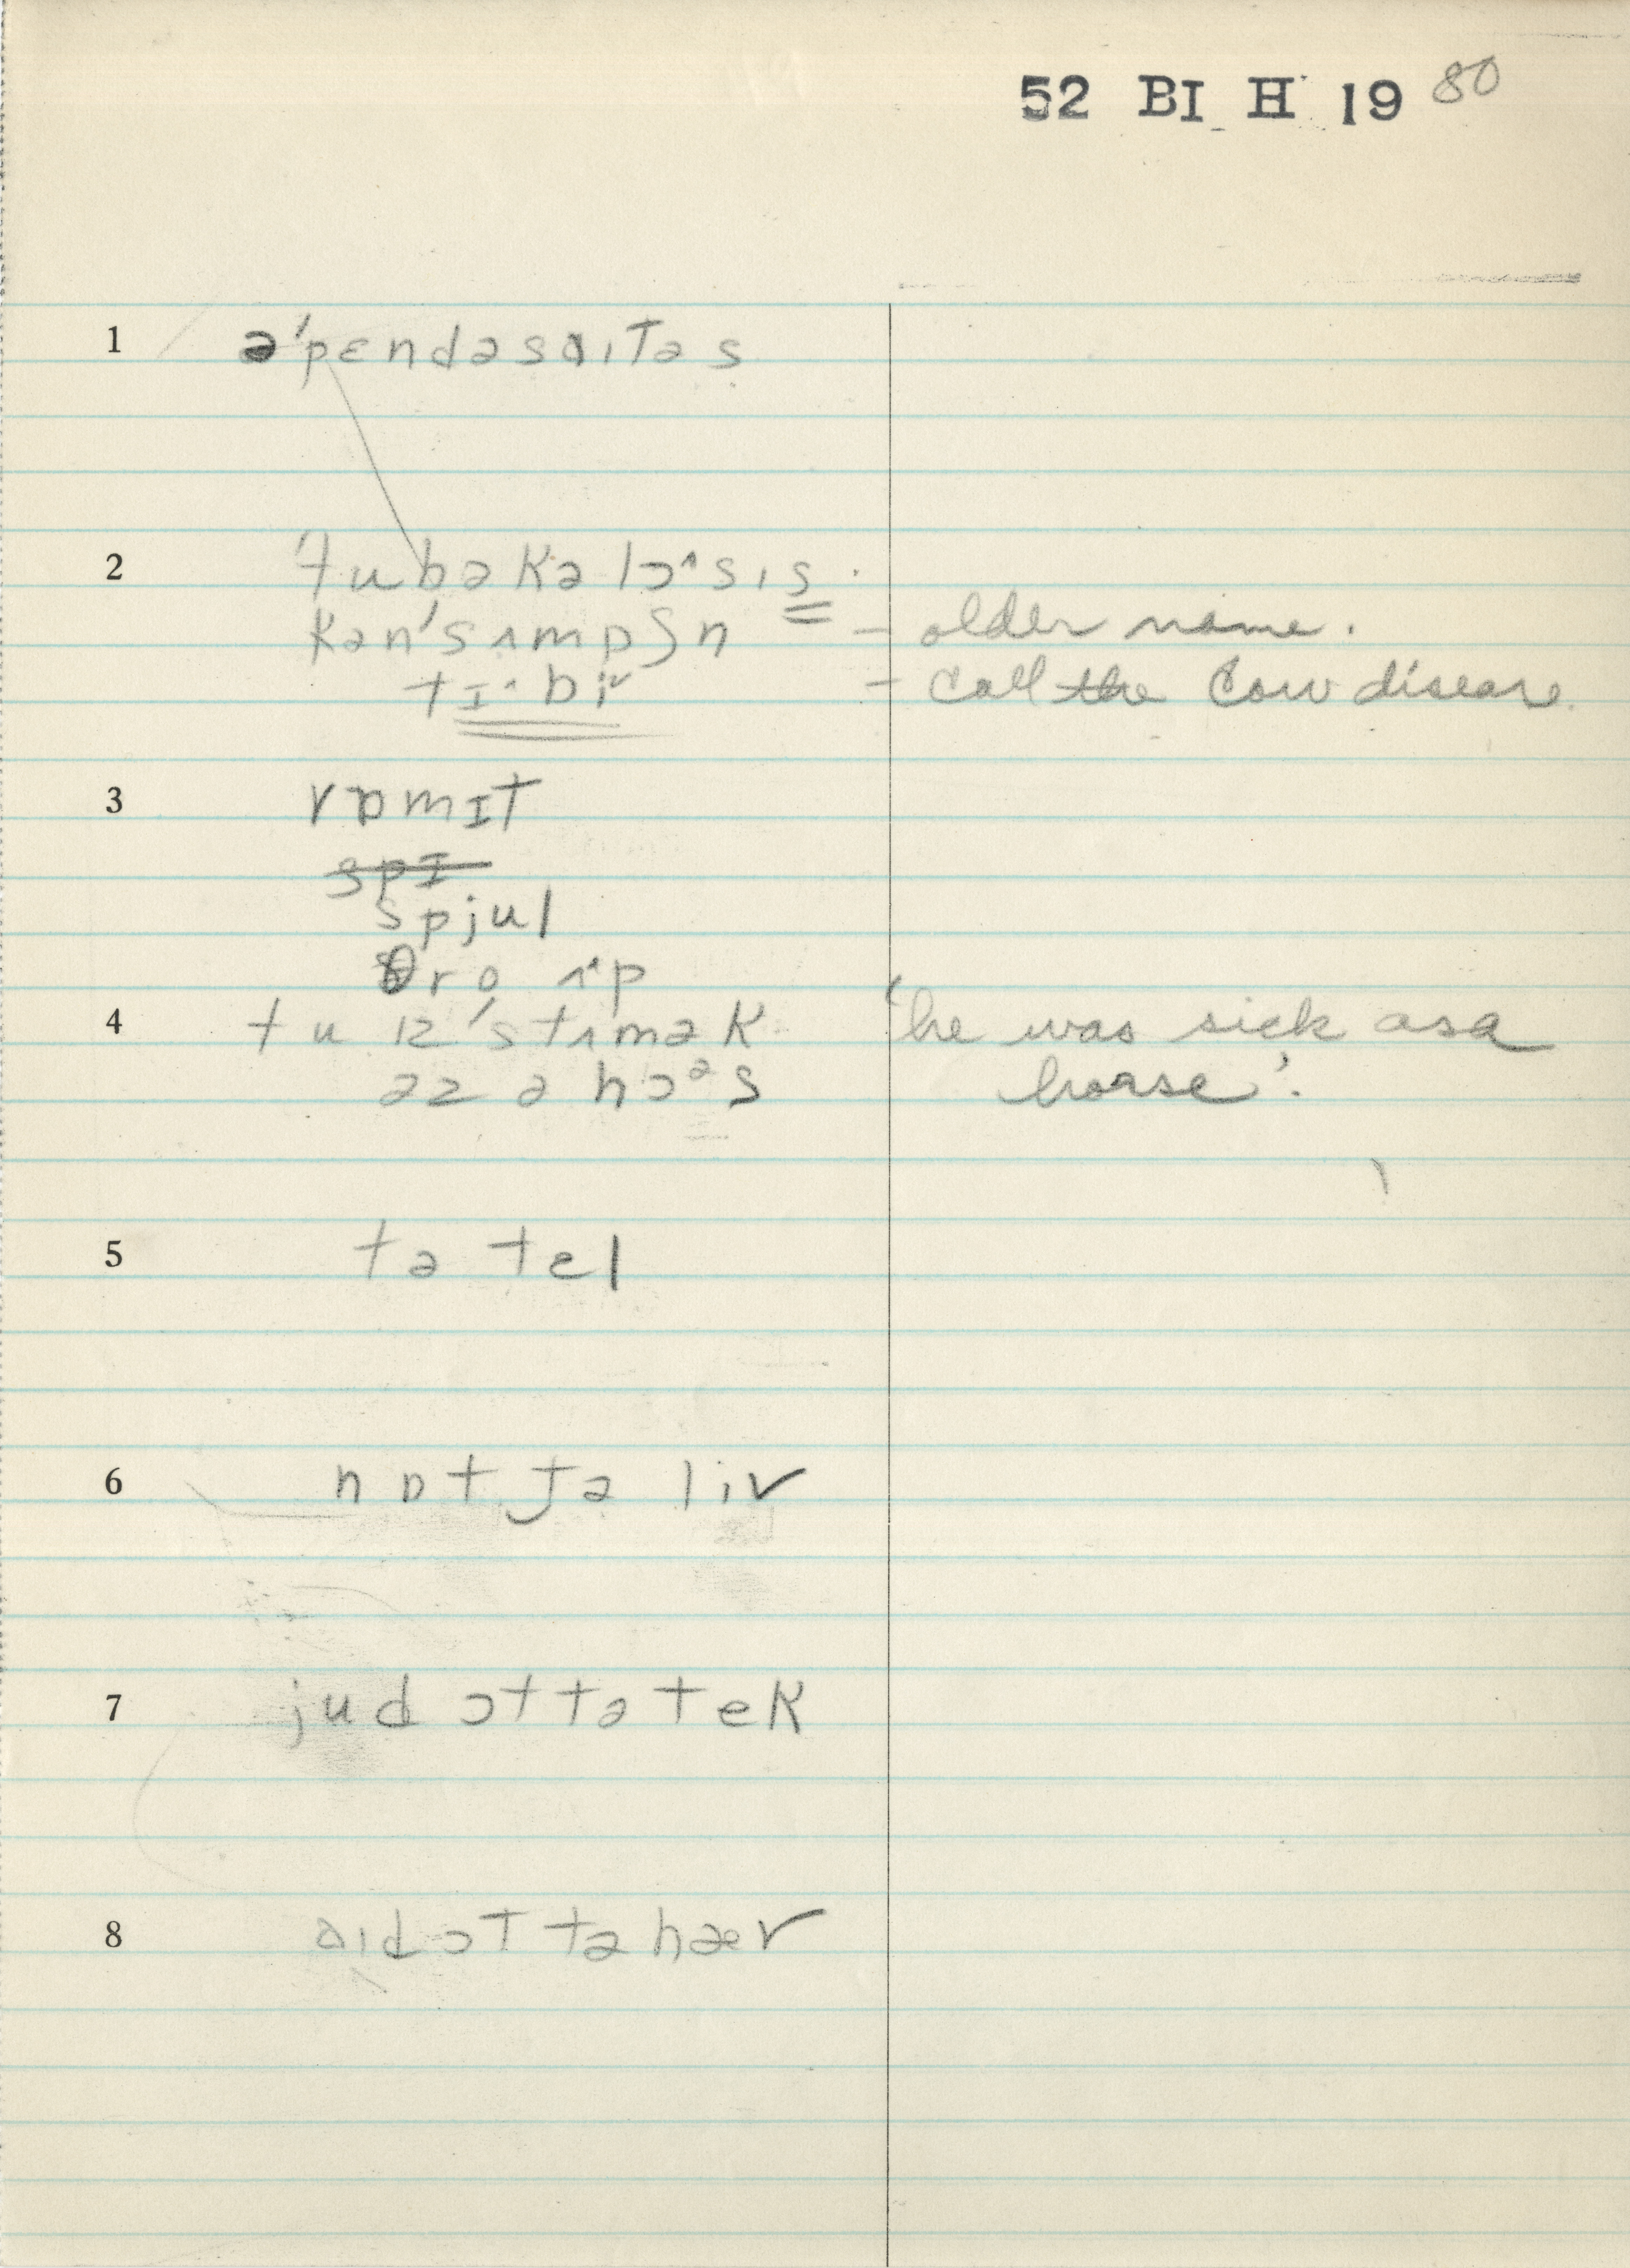 52 BI H 19 80
1 ə'pɛndəsɑɪtəs
2 'tubəkəlɔ^sɪs.
kən'sʌmpʃn – older name.
tɪ^bi – call the Cow disease.
3 vɒmɪt
spɪ
spjul
θro ʌ^p
4 tu ɪz 'stʌmək 'he was sick as a
əz ə hɔᵊs horse'.
5 tə tɛl
6 nɒt jə liv
7 jud ɔt tə tek
8 ɑɪd ɔt tə hæv